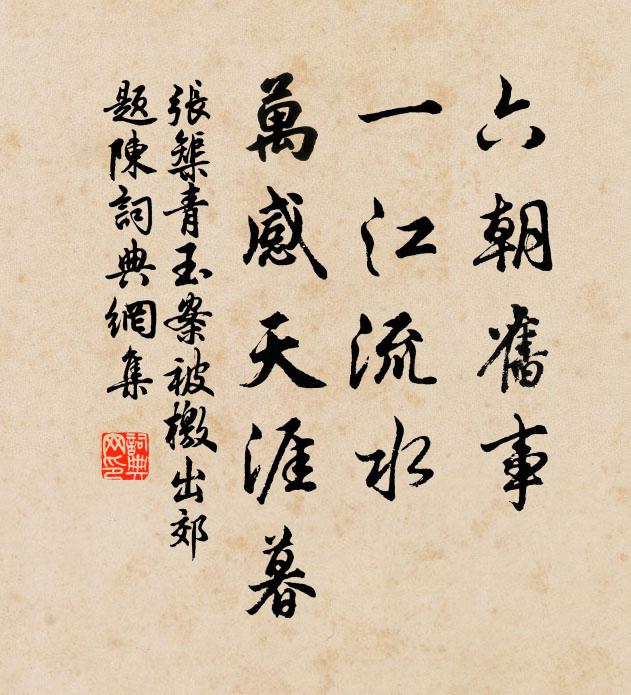 六朝舊事
一江流水
萬感天涯暮
張榘青玉案被檄出郊
題陳詞典網集
詞典網印